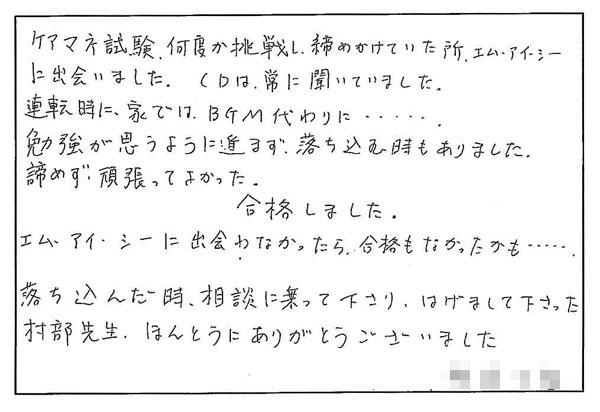 ケアマネ試験、何度か挑戦し、締めかけていた所、エム・アイ・シー
に出会いました。CDは、常に聞いていました。
運転時に、家では、BGM代わりに・・・・・。
勉強が思うように進まず、落ち込む時もありました。
諦めず、頑張ってよかった。
合格しました。
エム・アイ・シーに出会わなかったら、合格もなかったかも・・・・・。
落ち込んだ時、相談に乗って下さり、はげまして下さった
村部先生、ほんとうにありがとうございました